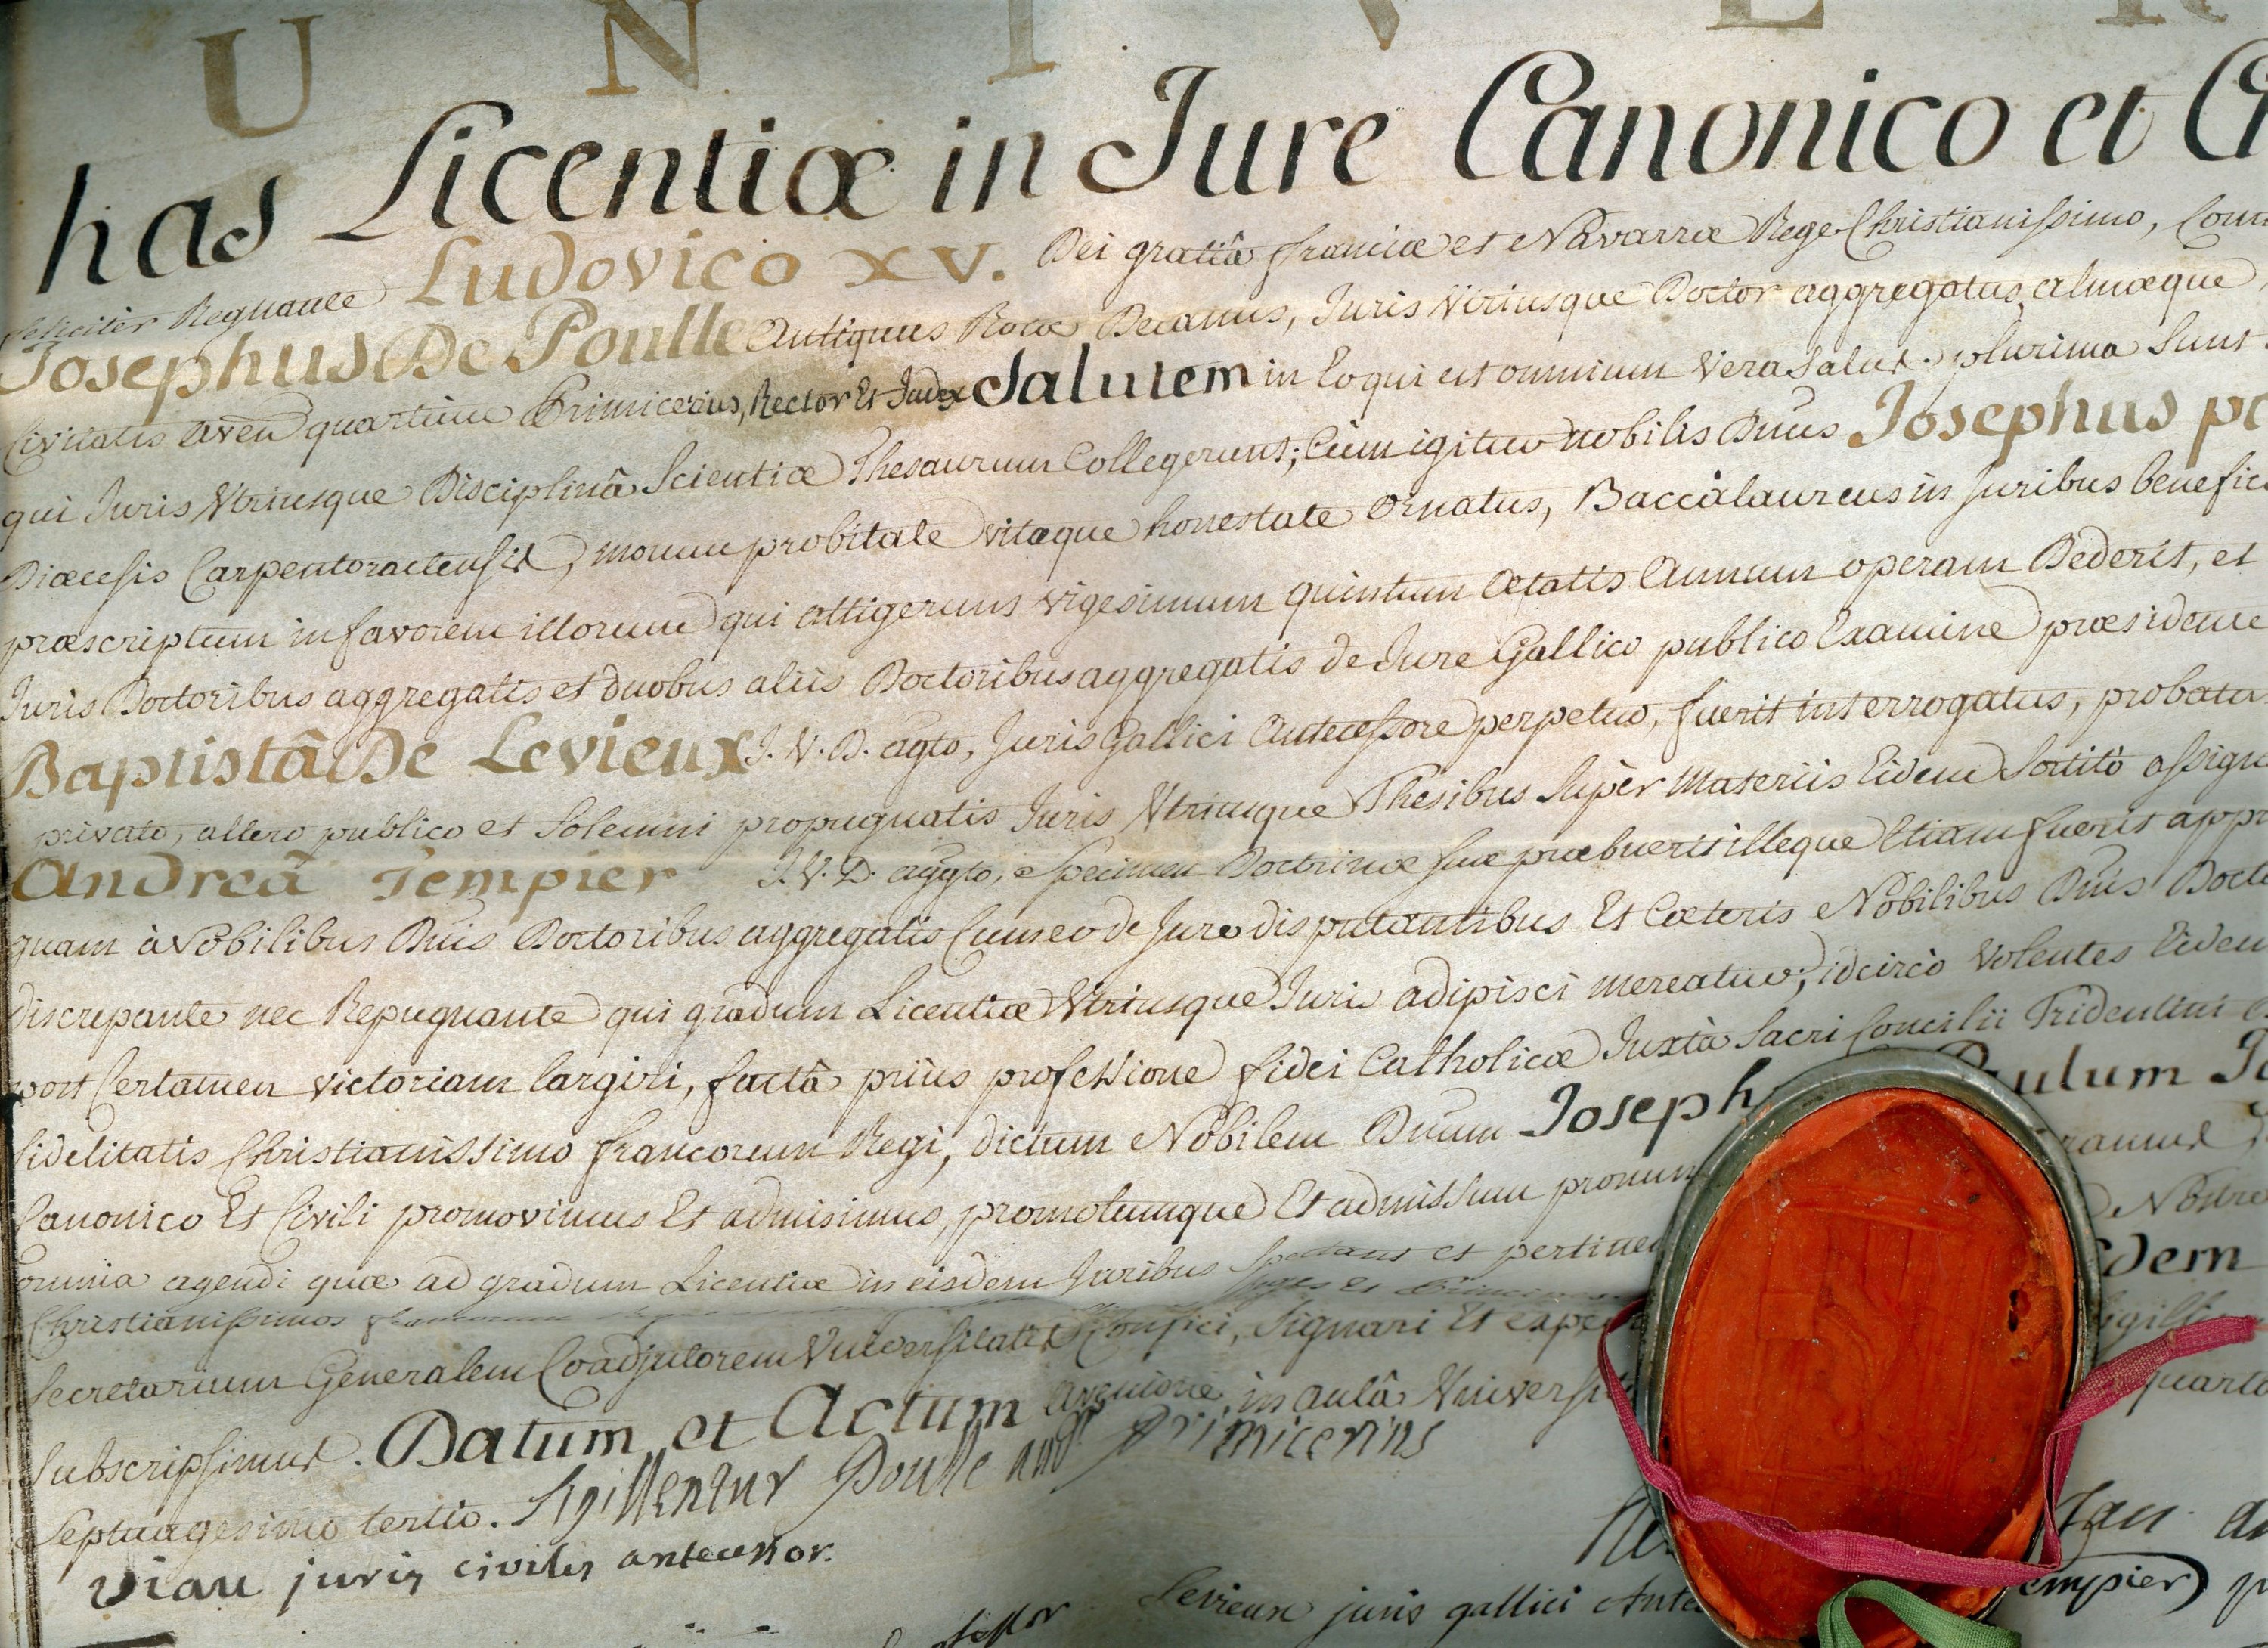 U N I V E R
has Licentiæ in Jure Canonico et Ci
feliciter Regnante Ludovico XV. Dei gratiâ franciæ et Navarræ Rege Christianissimo, Com
Josephus De Poulle Antiquus Rotæ Decanus, Juris Vtriusque Doctor aggregatus almæque
Civitatis aven quartùm Primicerius, Rector Et Judex Salutem in Eo qui est omnium Vera Salus. plurima Sunt
qui Juris Vtriusque Disciplinâ Scientiæ Thesaurum Collegerunt; Cùm igitur nobilis Dnus Josephus pa
Diæcesis Carpentoractensis, morum probitate vitæque honestate ornatus, Baccalaureus in Juribus benefici
præscriptum in favorem illorum qui attigerunt vigesimum quintum ætatis Annum operam Dederit, et
Juris Doctoribus aggregatis et duobus aliis Doctoribus aggregatis de Jure Gallico publico Examine præsidente
Baptistâ De Levieux J. V. D. agto, Juris Gallici Antecessore perpetuo, fuerit interrogatus, probatu
privato, altero publico et Solemni propugnatis Juris Vtriusque Thesibus Supèr Materiis Eidem Sortitò assign
Andreâ Tempier J. V. D. aggto, specimen Doctrinæ suæ præbuerit illeque Etiam fuerit appr
quam à Nobilibus Dnis Doctoribus aggregatis Cum eo de Jure disputantibus Et Cæteris Nobilibus Dnis Docto
discrepante nec Repugnante qui gradum Licentiæ Vtriusque Juris adipisci mereatur; idcircò Volentes Eidem
post Certamen victoriam largiri, factâ priùs professione fidei Catholicæ Juxtà Sacri Concilii Tridentini
fidelitatis Christianissimo francorum Regi, dictum Nobilem Dnum Joseph ulum
Canonico Et Civili promovimus Et admisimus, promotumque Et admissum pronun ramus
omnia agendi quæ ad gradum Licentiæ in eisdem Juribus Spectant et pertinen Nostre
Christianissimos francorum Reges et dem
Secretarium Generalem Coadjutorem Vniversitatis Confici, Signari Et expe igilli
Subscripsimus. Datum et Actum avenione, in aulâ Vniversita quarta
Septuagesimo tertio. Sigillentur Poulle Primicerius
Viau juris civilis antecessor.
Levieux juris gallici Ante empier